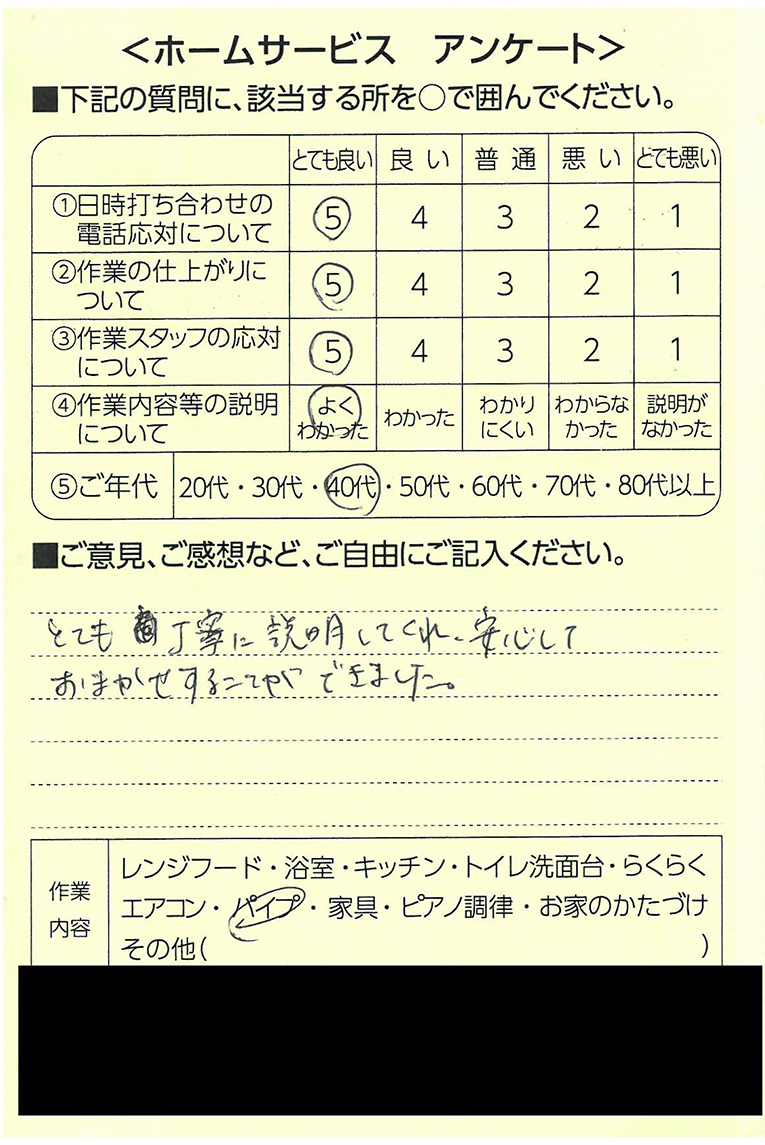 ＜ホームサービス　アンケート＞
■下記の質問に、該当する所を○で囲んでください。
とても良い 良い 普通 悪い とても悪い
①日時打ち合わせの
電話応対について 5 4 3 2 1
②作業の仕上がりに
ついて 5 4 3 2 1
③作業スタッフの応対
について 5 4 3 2 1
④作業内容等の説明
について よく
わかった わかった わかり
にくい わからな
かった 説明が
なかった
⑤ご年代 20代・30代・40代・50代・60代・70代・80代以上
■ご意見、ご感想など、ご自由にご記入ください。
とても丁寧に説明してくれ、安心して
おまかせすることができました。
作業
内容
レンジフード・浴室・キッチン・トイレ洗面台・らくらく
エアコン・パイプ・家具・ピアノ調律・お家のかたづけ
その他(　　　)